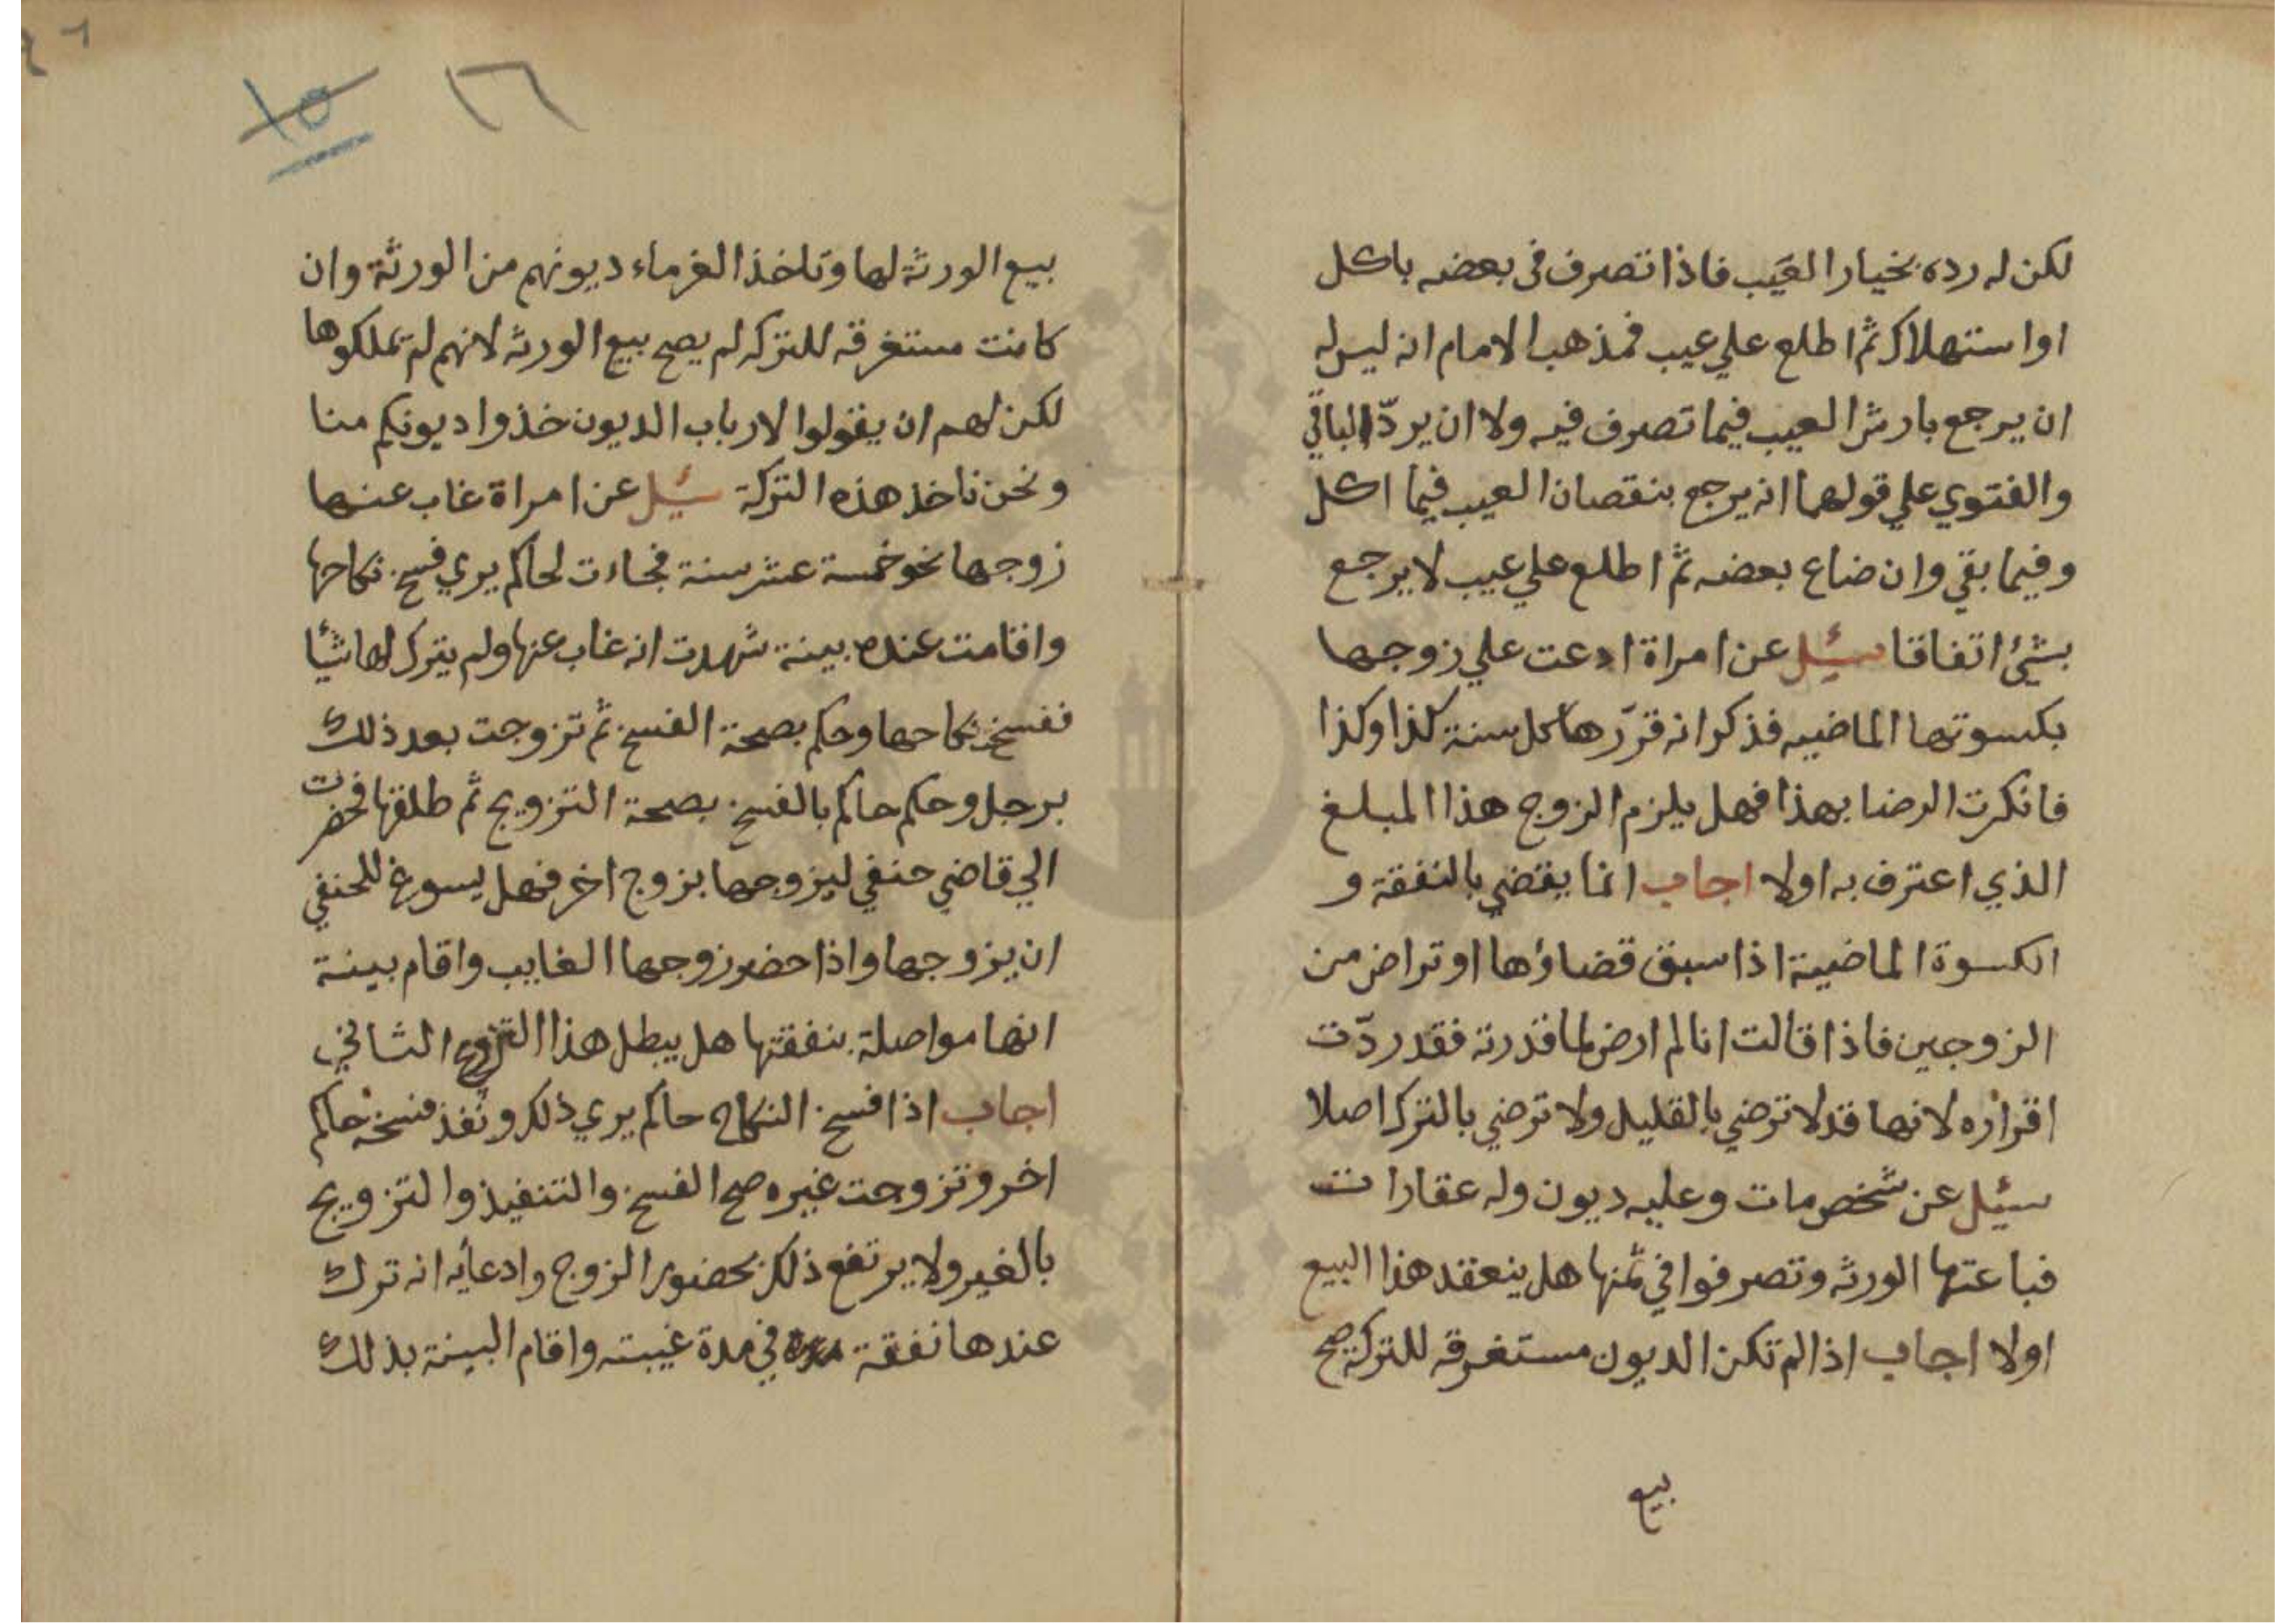 لكن له رده بخيار العيب فاذا تصرف فى بعضه باكل
او استهلاك ثم اطلع علي عيب فمذهب الامام انه ليس له
ان يرجع بارش العيب فيما تصرف فيه ولا ان يردّ الباقي
والفتوي علي قولهما انه يرجع بنقصان العيب فيما اكل
وفيما بقي وان ضاع بعضه ثم اطلع علي عيب لا يرجع
بشئ اتفاقا سئيل عن امراة ادعت علي زوجها
بكسوتها الماضيه فذكر انه قرّرها كل سنة كذا وكذا
فانكرت الرضا بهذا فهل يلزم الزوج هذا المبلغ
الذي اعترف به اولا اجاب انما يقضي بالنفقة و
الكسوة الماضية اذا سبق قضاؤها او تراض من
الزوجين فاذا قالت انا لم ارض لما قدرته فقد ردّت
اقراره لانها قد لا ترضي بالقليل ولا ترضي بالترك اصلا
سئيل عن شخص مات وعليه ديون وله عقارات
فباعتها الورثه وتصرفوا في ثمنها هل ينعقد هذا البيع
اولا اجاب اذا لم تكن الديون مستغرقه للتركة صح
بيع
٤٦
١٥ ١٦
بيع الورثة لها وتاخذ الغرماء ديونهم من الورثة وان
كانت مستغرقه للتركه لم يصح بيع الورثه لانهم لم يملكوها
لكن لهم ان يقولوا لارباب الديون خذوا ديونكم منا
ونحن ناخذ هذه التركة سئيل عن امراة غاب عنها
زوجها نحو خمسة عشر سنة فجاءت لحاكم يري فسخ نكاحها
واقامت عنده بينة شهدت انه غاب عنها ولم يترك لها شيًا
ففسخ نكاحها وحكم بصحة الفسخ ثم تزوجت بعد ذلك
برجل وحكم حاكم بالفسخ بصحة التزويج ثم طلقها فحضرت
الي قاضي حنفي ليزوجها بزوج اخر فهل يسوغ للحنفي
ان يزوجها واذا حضر زوجها الغايب واقام بينة
انها مواصلة بنفقتها هل يبطل هذا التزوج الثاني
اجاب اذا فسخ النكاح حاكم يري ذلك ونفذ فسخه حاكم
اخر وتزوجت غيره صح الفسخ والتنفيذ والتزويج
بالغير ولا يرتفع ذلك بحضور الزوج وادعائه انه ترك
عندها نفقة في مدة غيبته واقام البينة بذلك